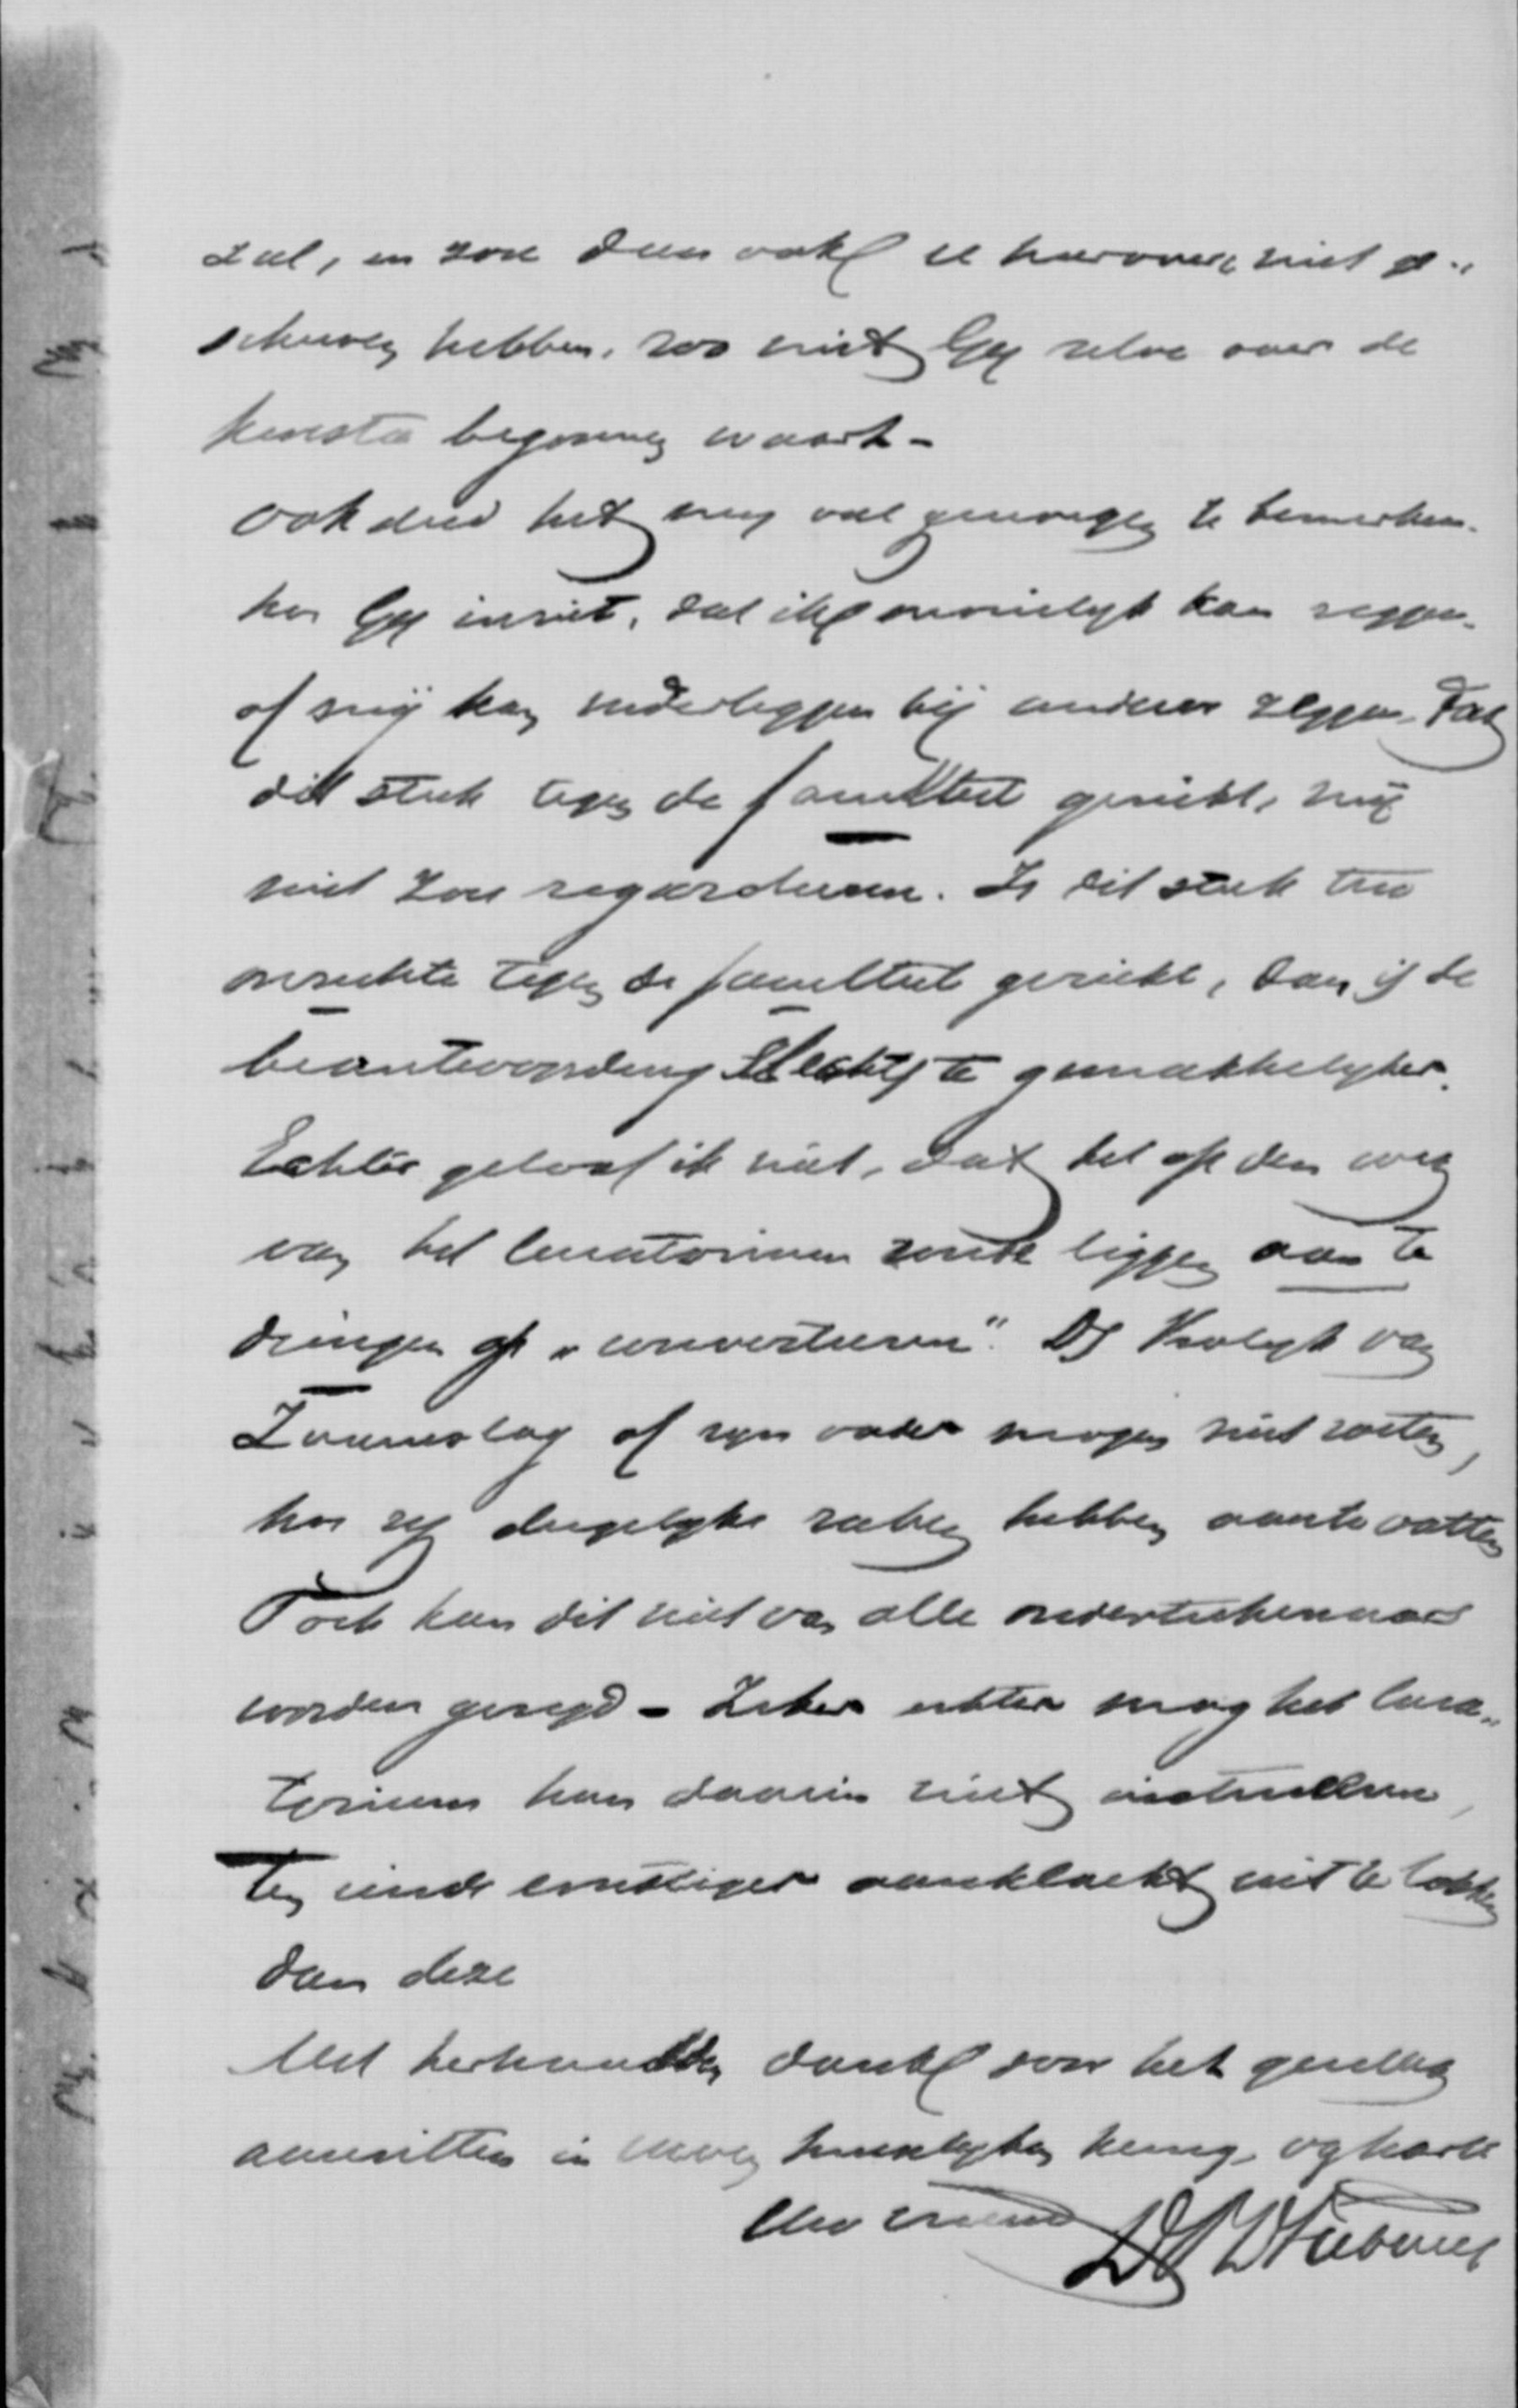 zal, en zou dan ook U hierover niet ge-
schreven hebben, zoo niet Gy zelve over de
kwestie begonnen waart -
Ook deed het my veel genoegen te bemerken
hoe Gy inziet, dat ik moeielyk kan zeggen
of mij kan nederleggen bij anderer zeggen, dat
dit stuk tegen de faculteit gericht, mij
niet zou regardeeren. Is dit stuk ten
onrechte tegen de faculteit gericht, dan is de
beantwoording slechts te gemakkelyker.
Echter geloof ik niet, dat het op den weg
van het Curatorium zoude liggen aan te
dringen op „converteeren". Ds van
Zaamslag of zyn vader mogen niet weten,
hoe zy dergelyke zaken hebben aan te vatten
Toch kan dit niet van alle onderteekenaars
worden gezegd - Zeker echter mag het Cura-
torium hen daarin niet instrueeren,
ten einde ernstiger aanklacht uit te lokken
dan deze
Met herhaalden dank voor het gezellig
aanzitten in Uwen huiselyken kring,
Uw vriend